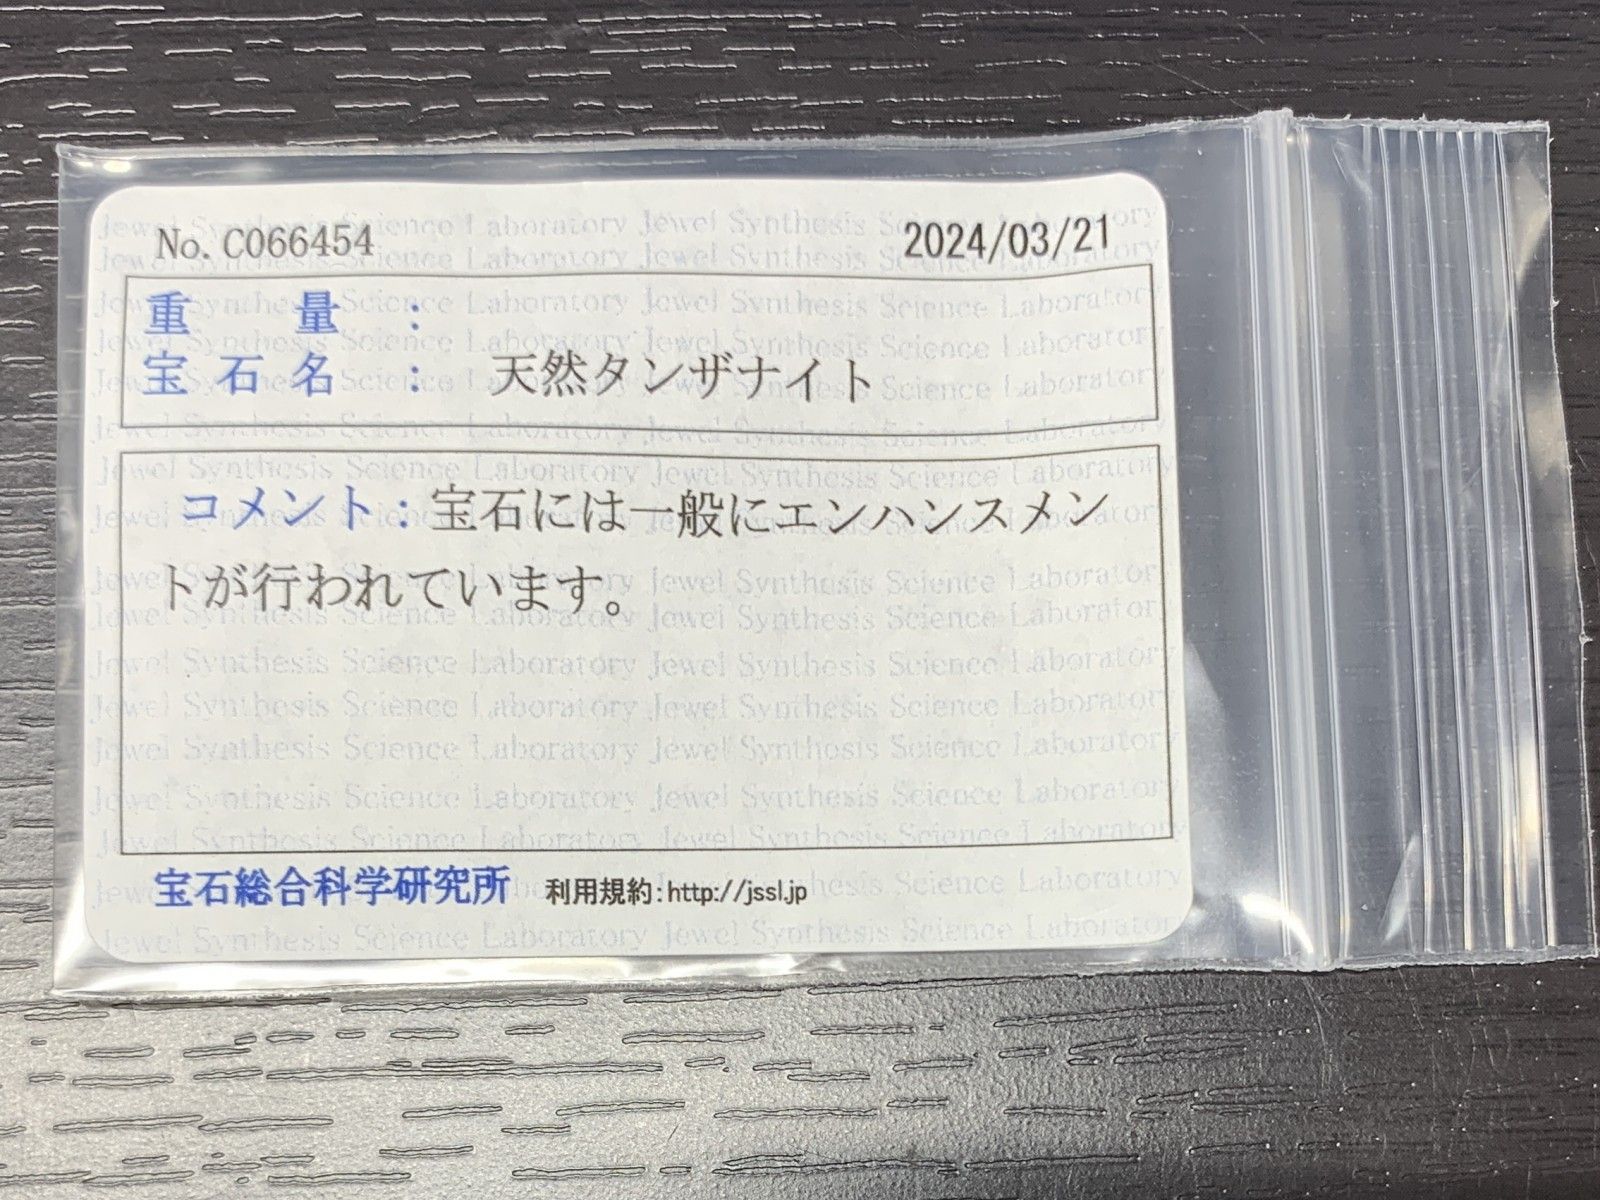 No. C066454 2024/03/21
重量：
宝石名： 天然タンザナイト
コメント：宝石には一般にエンハンスメン
トが行われています。
宝石総合科学研究所 利用規約：http://jssl.jp
Jewel Synthesis Science Laboratory Jewel Synthesis Science Laboratory